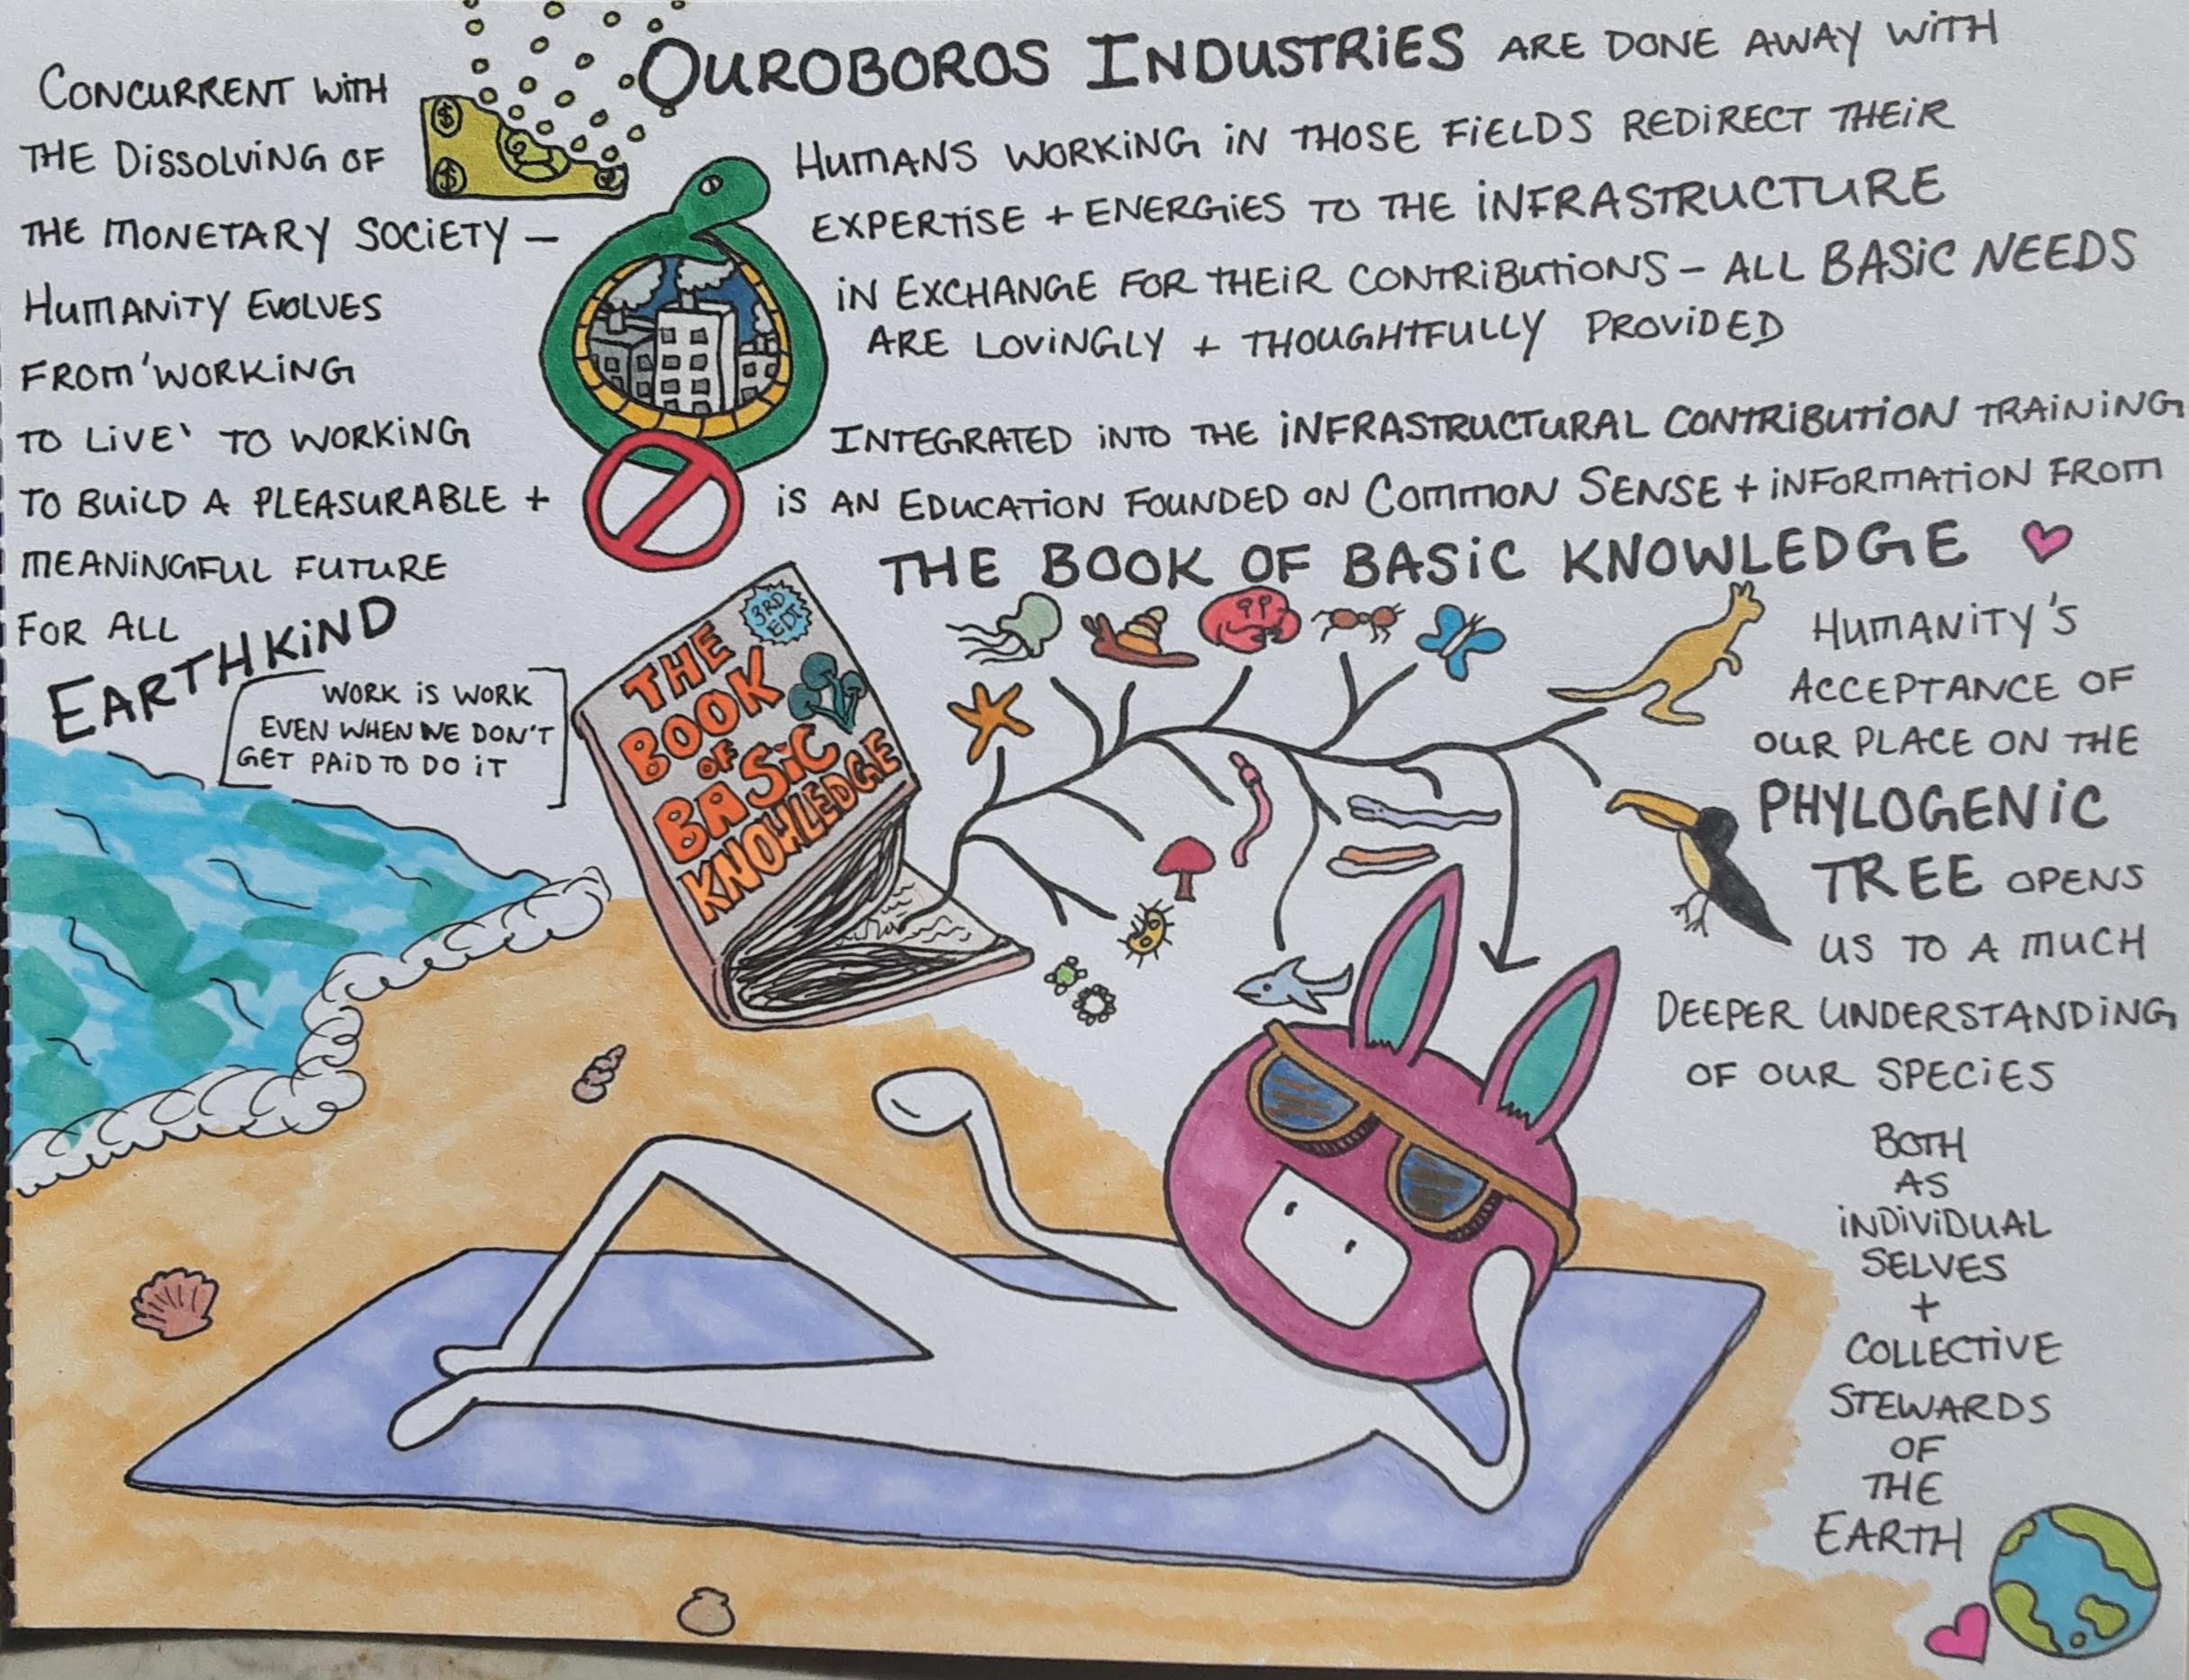 CONCURRENT WITH
THE DISSOLVING OF
THE MONETARY SOCIETY –
HUMANITY EVOLVES
FROM 'WORKING
TO LIVE' TO WORKING
TO BUILD A PLEASURABLE +
MEANINGFUL FUTURE
FOR ALL
EARTHKIND
WORK IS WORK
EVEN WHEN WE DON'T
GET PAID TO DO IT
$
$
OUROBOROS INDUSTRIES ARE DONE AWAY WITH
HUMANS WORKING IN THOSE FIELDS REDIRECT THEIR
EXPERTISE + ENERGIES TO THE INFRASTRUCTURE
IN EXCHANGE FOR THEIR CONTRIBUTIONS – ALL BASIC NEEDS
ARE LOVINGLY + THOUGHTFULLY PROVIDED
INTEGRATED INTO THE INFRASTRUCTURAL CONTRIBUTION TRAINING
IS AN EDUCATION FOUNDED ON COMMON SENSE + INFORMATION FROM
THE BOOK OF BASIC KNOWLEDGE
3RD
EDT
THE
BOOK
OF
BASIC
KNOWLEDGE
HUMANITY'S
ACCEPTANCE OF
OUR PLACE ON THE
PHYLOGENIC
TREE OPENS
US TO A MUCH
DEEPER UNDERSTANDING
OF OUR SPECIES
BOTH
AS
INDIVIDUAL
SELVES
+
COLLECTIVE
STEWARDS
OF
THE
EARTH